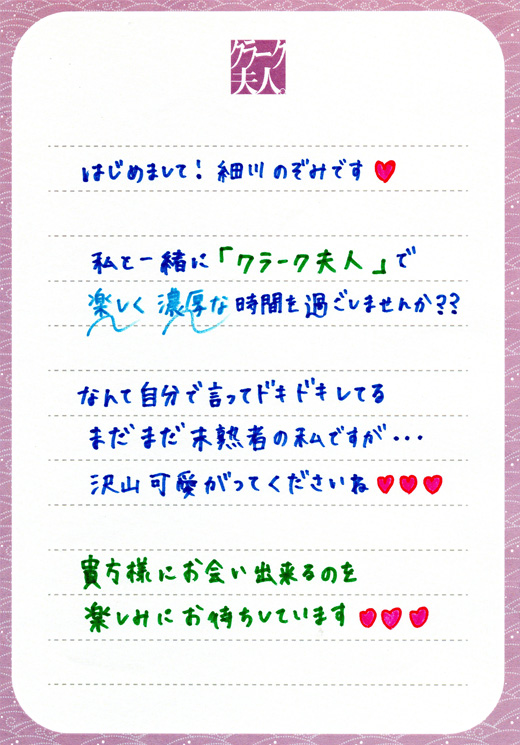 クラーク
夫人。
はじめまして！細川のぞみです♥
私と一緒に「クラーク夫人」で
楽しく濃厚な時間を過ごしませんか??
なんて自分で言ってドキドキしてる
まだまだ未熟者の私ですが・・・
沢山可愛がってくださいね♥♥♥
貴方様にお会い出来るのを
楽しみにお待ちしています♥♥♥